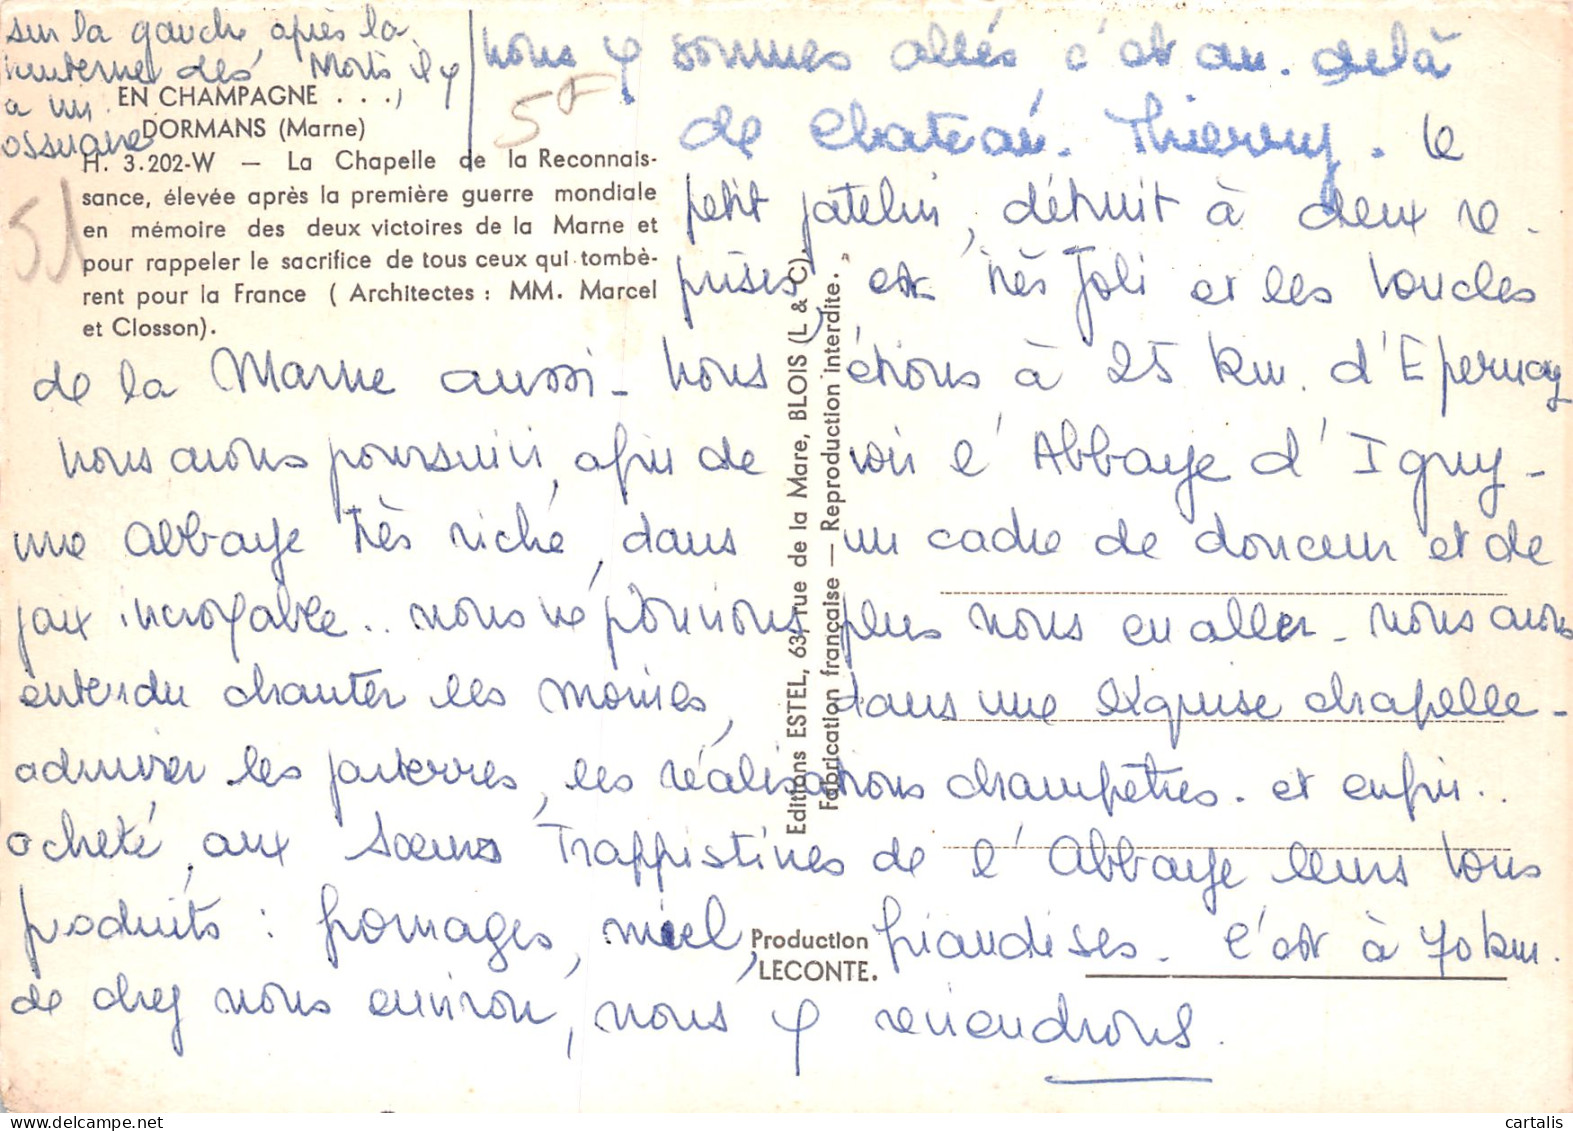 sur la gauche, après la
lanterne des Morts il y
a un
ossuaire
EN CHAMPAGNE . . .
DORMANS (Marne)
H. 3.202-W — La Chapelle de la Reconnais-
sance, élevée après la première guerre mondiale
en mémoire des deux victoires de la Marne et
pour rappeler le sacrifice de tous ceux qui tombè-
rent pour la France ( Architectes : MM. Marcel
et Closson).
5F
51
nous y sommes allés c'est au. delà
de Chateau. Thierry. le
petit patelin, détruit à deux re-
prises, est très joli et les boucles
de la Marne aussi - nous étions à 25 km. d'Epernay
nous avons poursuivi, afin de voir l'Abbaye d'Igny -
une abbaye très riche, dans un cadre de douceur et de
paix incroyable.. nous ne pouvions plus nous en aller - nous avons
entendu chanter les moines, dans une exquise chapelle -
admirer les parterres, les réalisations champêtres. et enfin..
acheté aux soeurs Trappistines de l'Abbaye leurs bons
produits : fromages, miel, friandises. C'est à 70 km.
de chez nous environ, nous y reviendrons.
Editions ESTEL, 63, rue de la Mare, BLOIS (L & C)
Fabrication française — Reproduction interdite.
Production
LECONTE.
cartalis